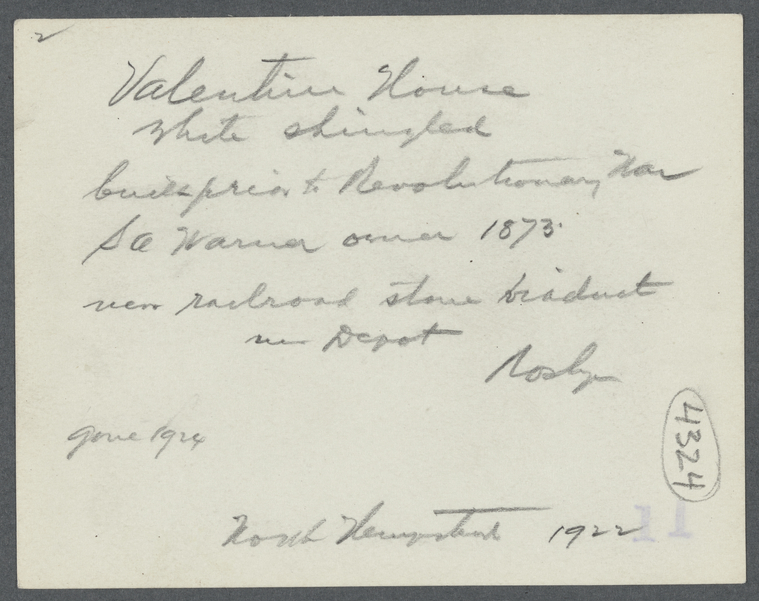 2
Valentine House
White shingled
built prior to Revolutionary War
S A Warner owner 1873
near railroad stone viaduct
near Depot
Roslyn
gone 1924
4324
North Hempstead 1922